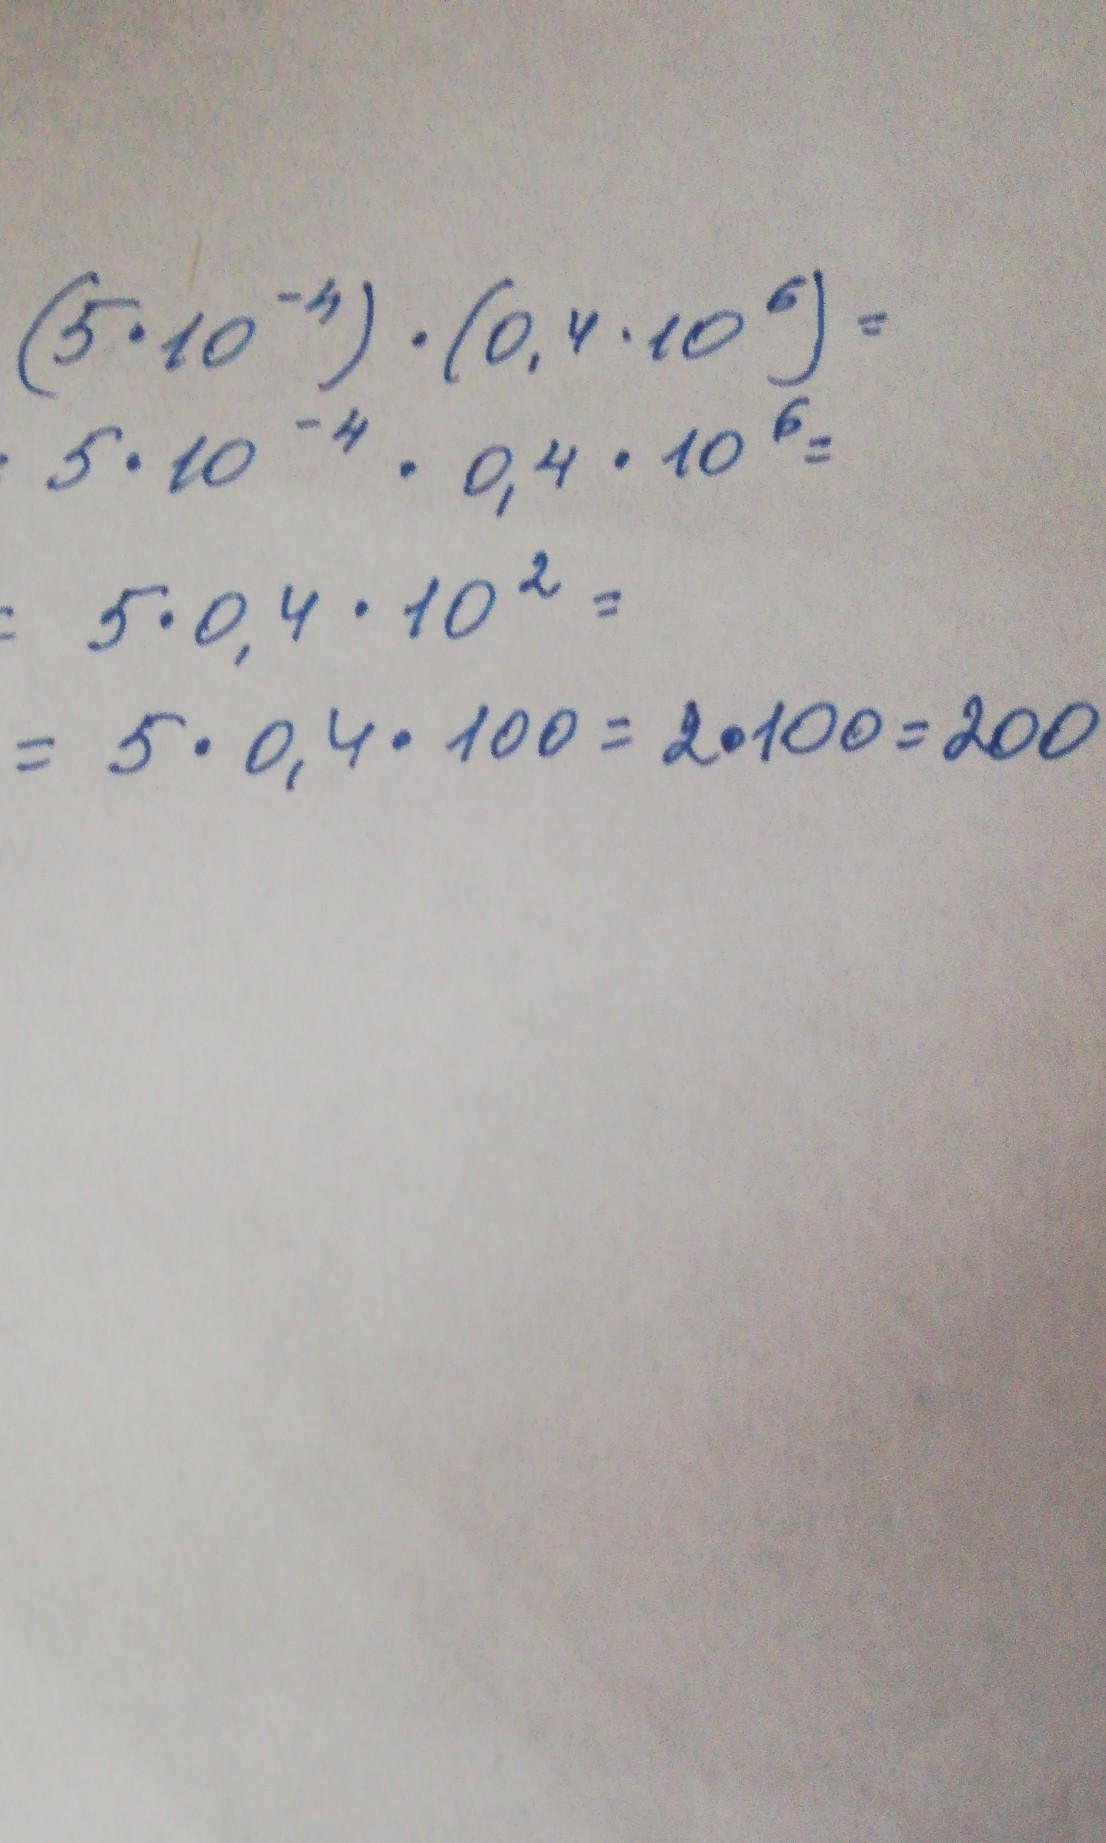 (5·10⁻⁴)·(0,4·10⁶)=
= 5·10⁻⁴ · 0,4·10⁶=
= 5·0,4·10² =
= 5·0,4·100=2·100=200